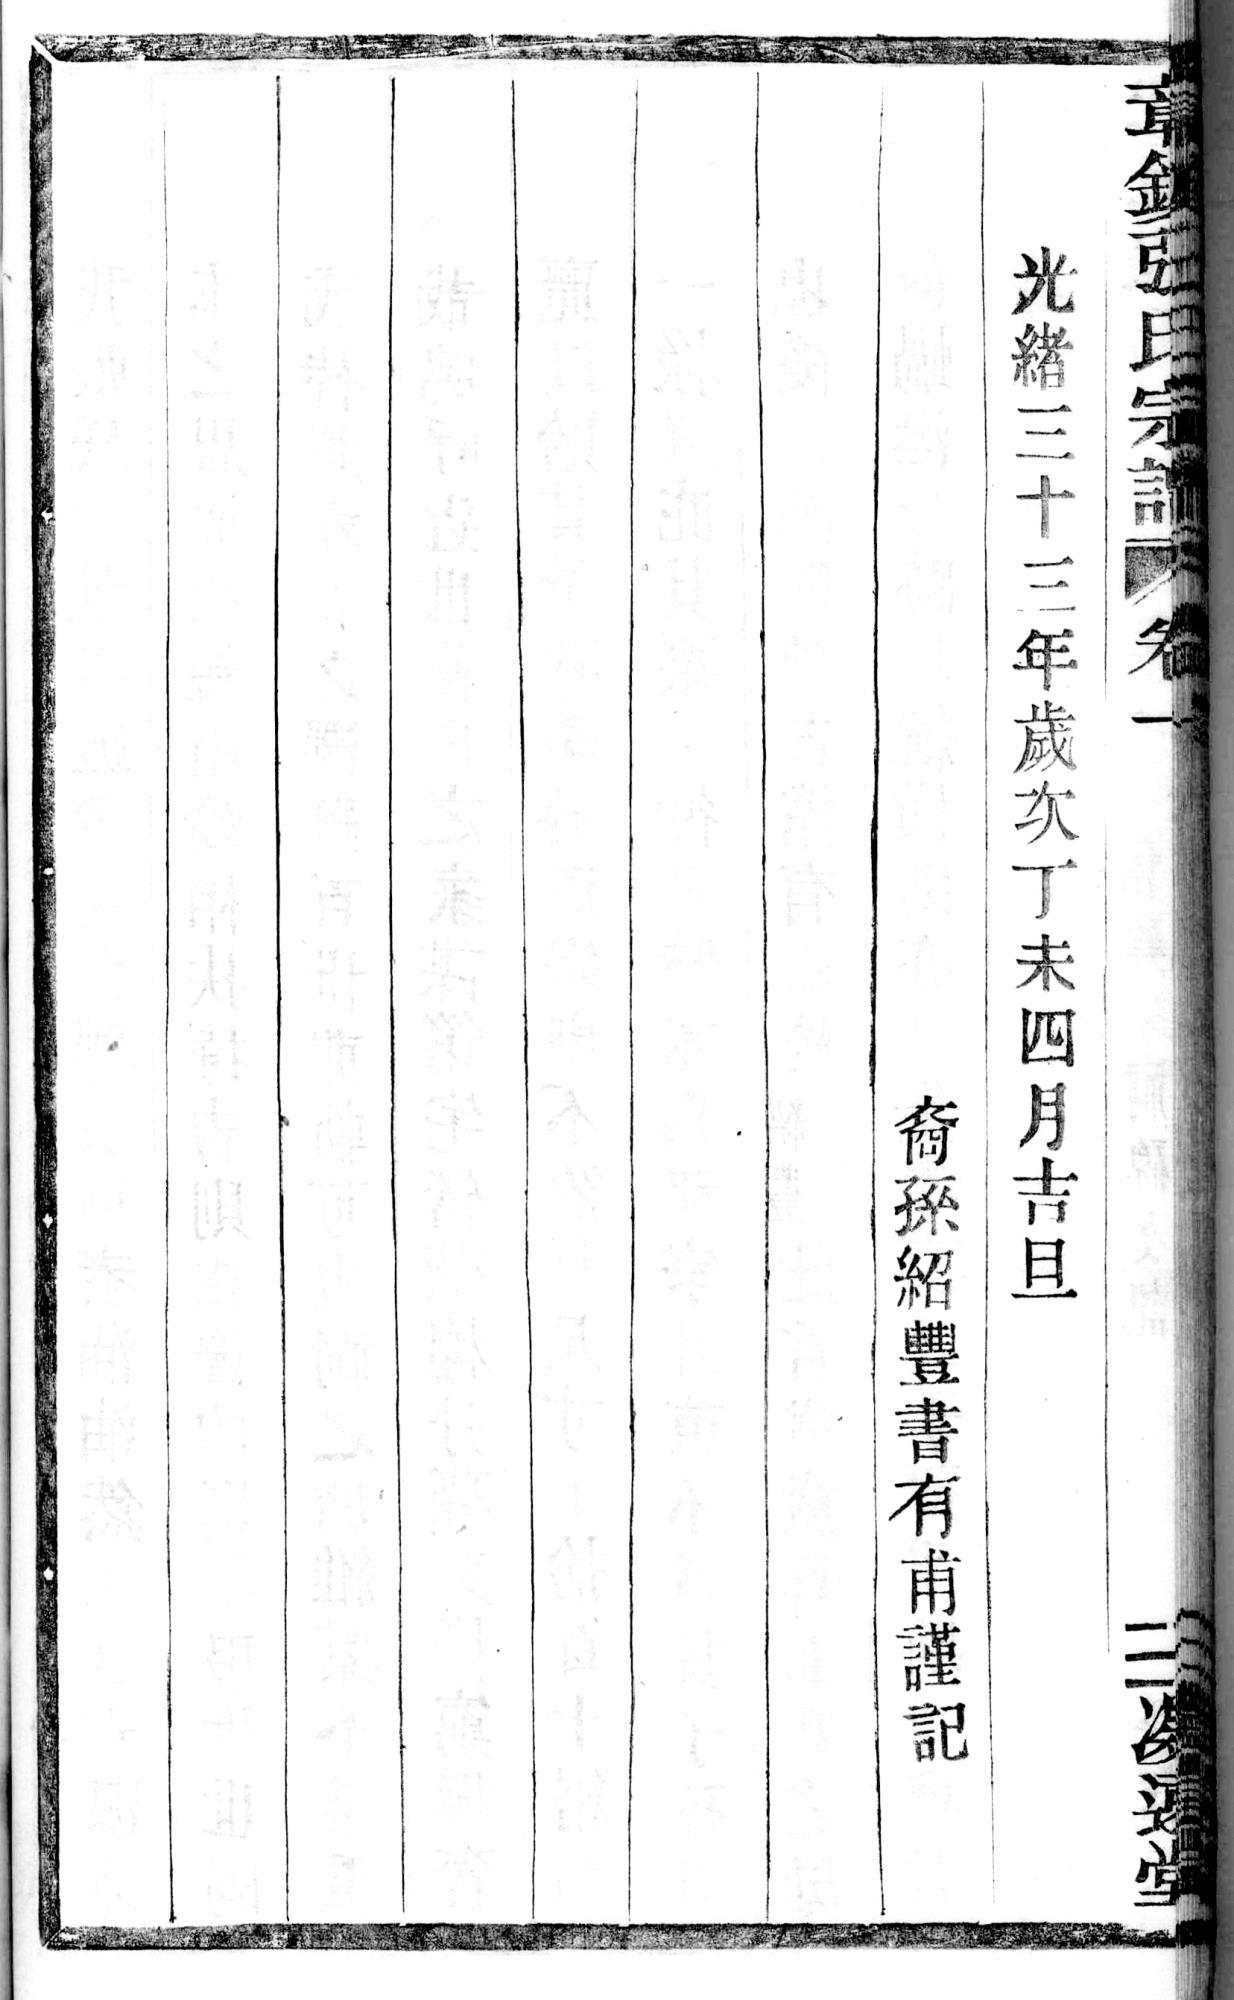 章鎮張氏宗譜 卷一
光緒三十三年歲次丁未四月吉旦
裔孫紹豐書有甫謹記
二
堂